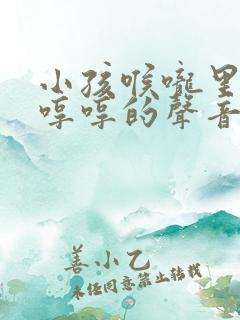 小孩喉嚨里
哼哼的聲音
善小乙
未任同意禁止转载